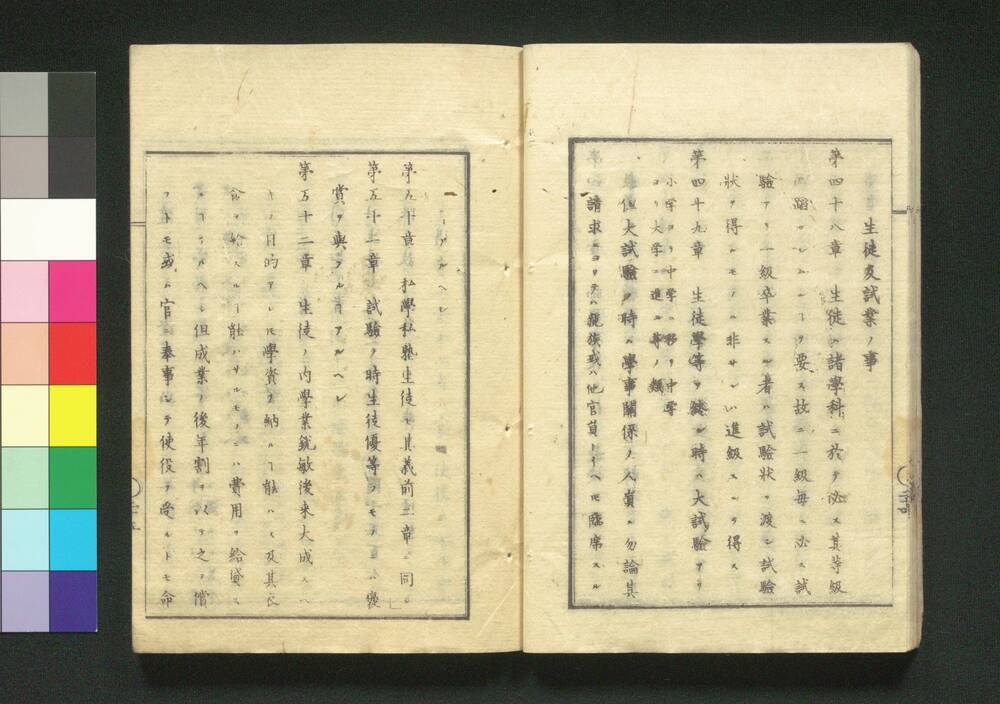 生徒及試業ノ事
第四十八章 生徒ハ諸學科ニ於テ必ス其等級
ヲ踏マシムルヿヲ要ス故ニ一級毎ニ必ス試
驗アリ一級卒業スル者ハ試驗状ヲ渡シ試驗
状ヲ得ルモノニ非サレハ進級スルヲ得ス
第四十九章 生徒學等ヲ終ル時ハ大試驗アリ
小学ヨリ中学ニ移リ中学
ヨリ大学ニ進ム等ノ類
但大試驗ノ時ハ學事關係ノ人員ハ勿論其
請求ニヨリテハ親族或ハ他官員トイヘ𪜈臨席スル
ヿアルヘシ
第五十章 私學私塾生徒モ其義前二章ニ同シ
第五十一章 試驗ノ時生徒優等ノモノニハ褒
賞ヲ與フルヿアルヘシ
第五十二章 生徒ノ内學業鋭敏後来大成スヘ
キノ目的アレ𪜈學資ヲ納ルヿ能ハス及其衣
食ヲ給スルヿ能ハサルモノニハ費用ヲ給貸ス
ルヿアルヘシ但成業ノ後年割ヲ以テ之ヲ償
フトモ或ハ官ニ奉事シテ使役ヲ受ルトモ命